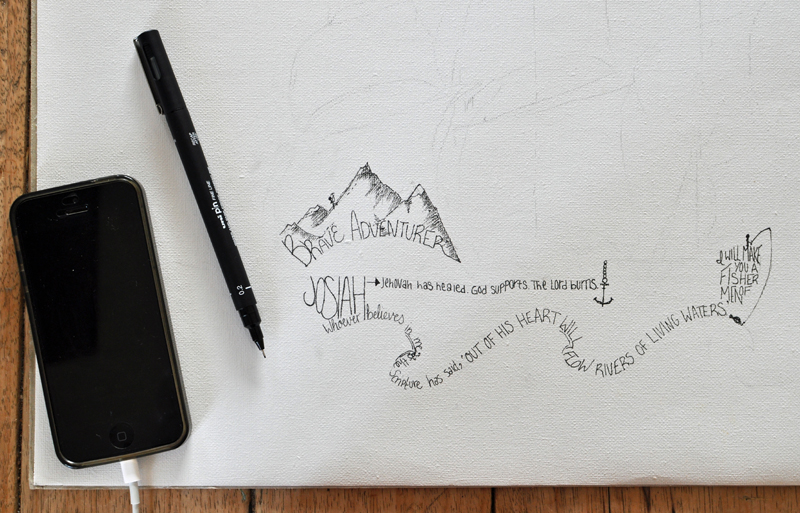 BRAVE ADVENTURER
JOSIAH
Jehovah has healed. God supports. The Lord burns.
Whoever believes in me
the
Scripture has said, 'OUT OF HIS HEART WILL
FLOW RIVERS OF LIVING WATERS
I WILL MAKE
YOU A
FISHER
OF
MEN
uni pin FINE LINE
0.2